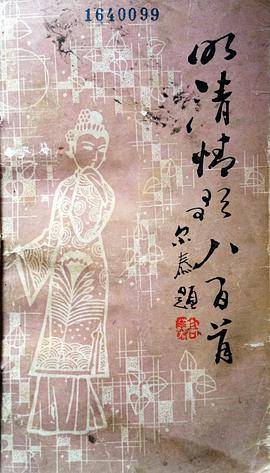 1640099
明清情歌八百首
尔泰题